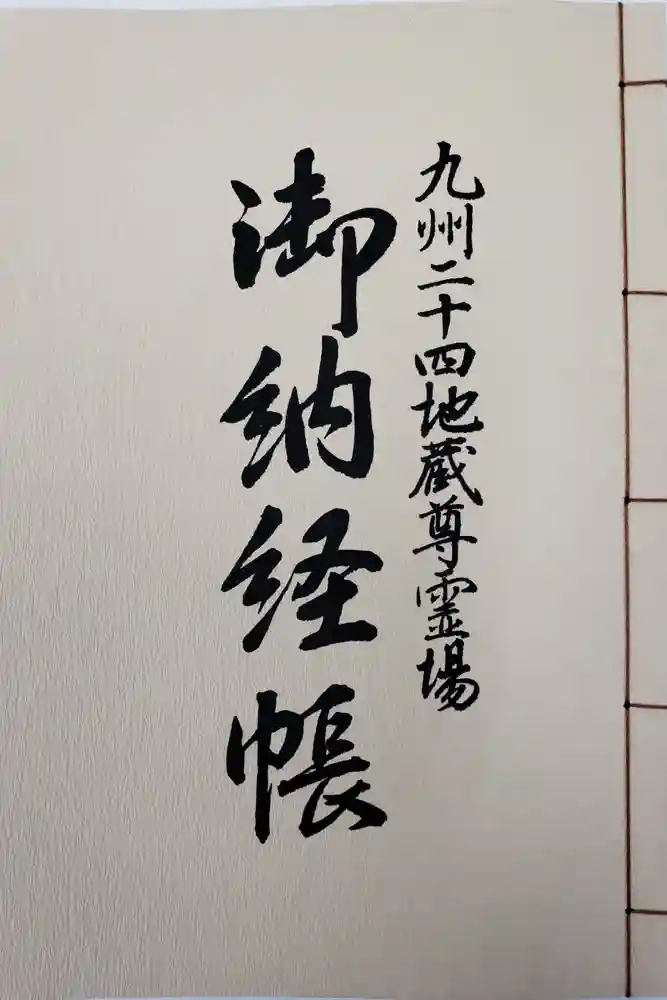 九州二十四地蔵尊霊場
御納経帳